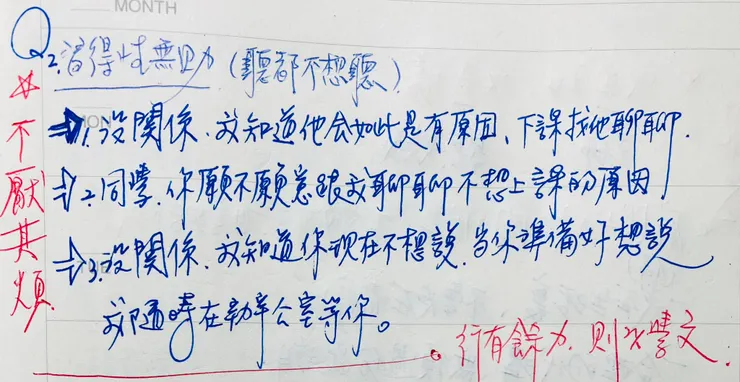 MONTH
Q2.習得性無助(聽都不想聽)
⇒1.沒關係、我知道他会如此是有原因、下課找他聊聊.
⇒2.同學.你願不願意跟我聊聊不想上課的原因
⇒3.沒關係、我知道你現在不想說.當你準備好想說
我隨時在辦公室等你。
☆不厭其煩
行有餘力.則以學文